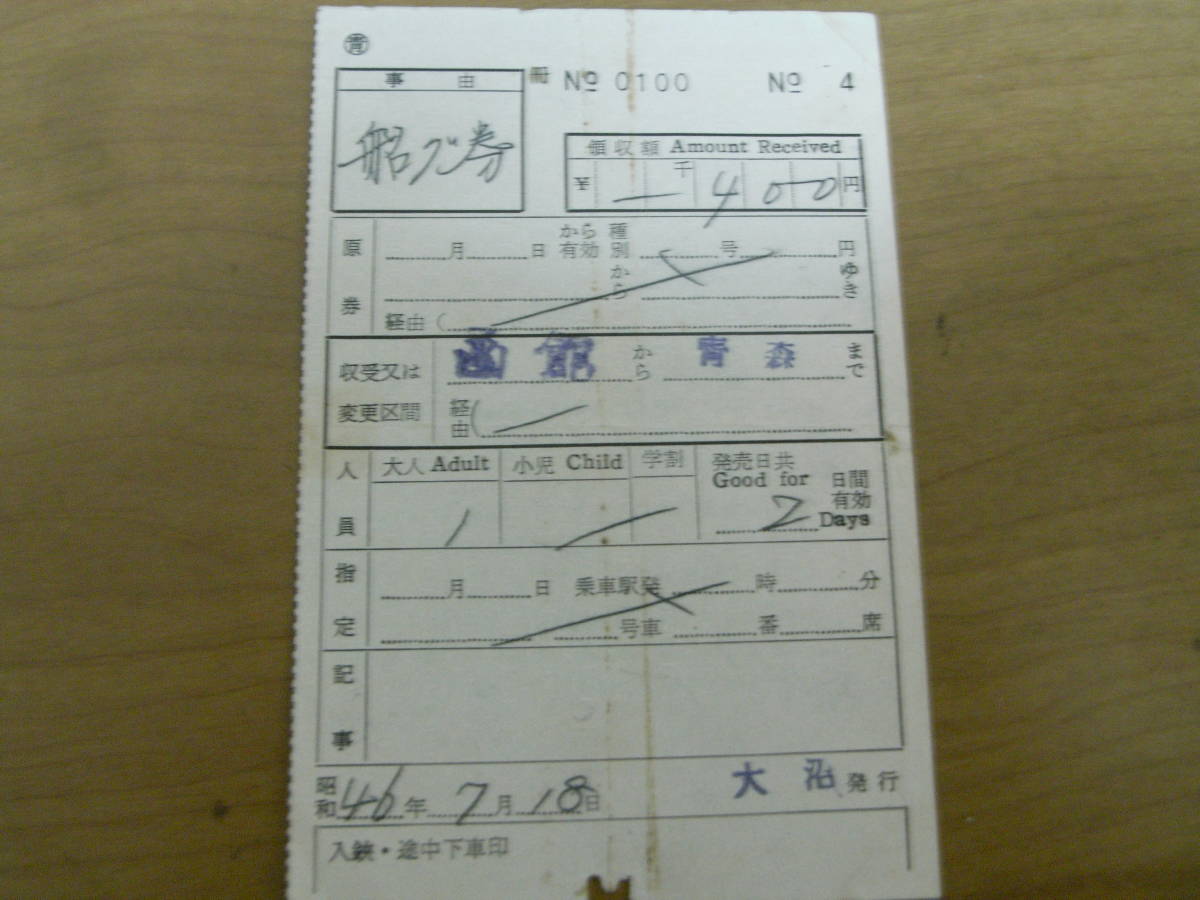 青
事由
冊 No 0100 No 4
船グ券
領収額 Amount Received
¥ 一 千 400 円
原券
月 日から有効 種別 号 円
から ゆき
経由(
収受又は変更区間
函館から 青森まで
経由(
人員
大人 Adult 小児 Child 学割
発売日共
Good for 日間有効
1
2 Days
指定
月 日 乗車駅発 時 分
号車 番 席
記事
昭和46年7月18日
大沼 発行
入鋏・途中下車印